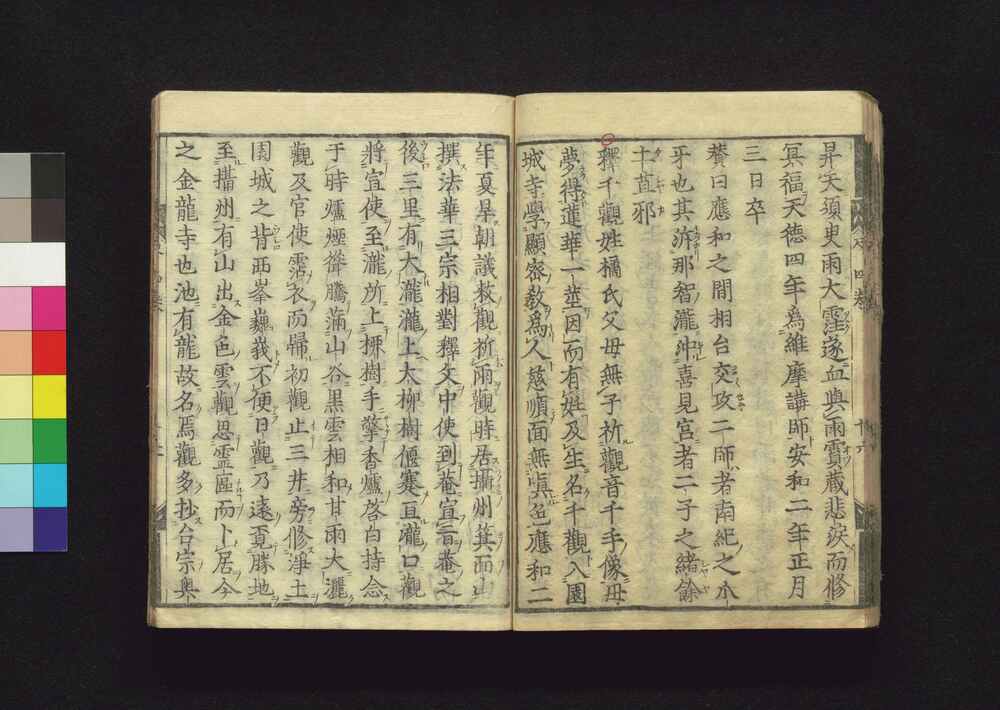 昇天須臾雨大霔遂血與雨賈藏悲淚而修
冥福天德四年為維摩講師安和二年正月
三日卒
贊曰應和之間相台交攻二師者南紀之爪
牙也其泝那智瀧沖喜見宮者二子之緒餘
土苴邪
釋千觀姓橘氏父母無子祈觀音千手像母
夢得蓮華一莖因而有姙及生名千觀入園
城寺學顯密教為人慈順面無嗔色應和二
年夏旱朝議敕觀祈雨觀時居攝州箕面山
撰法華三宗相對釋文中使到菴宣旨菴之
後三里有大瀧瀧上大柳樹偃蹇亘瀧口觀
將宣使至瀧所上柳樹手擎香爐啓白持念
于時爐煙聳騰滿山谷黑雲相和甘雨大灑
觀及官使霑衣而歸初觀止三井旁修淨土
園城之背西峯巍峩不便日觀乃遠覓勝地
至攝州有山出金色雲觀思靈區而卜居今
之金龍寺也池有龍故名焉觀多抄台宗奧